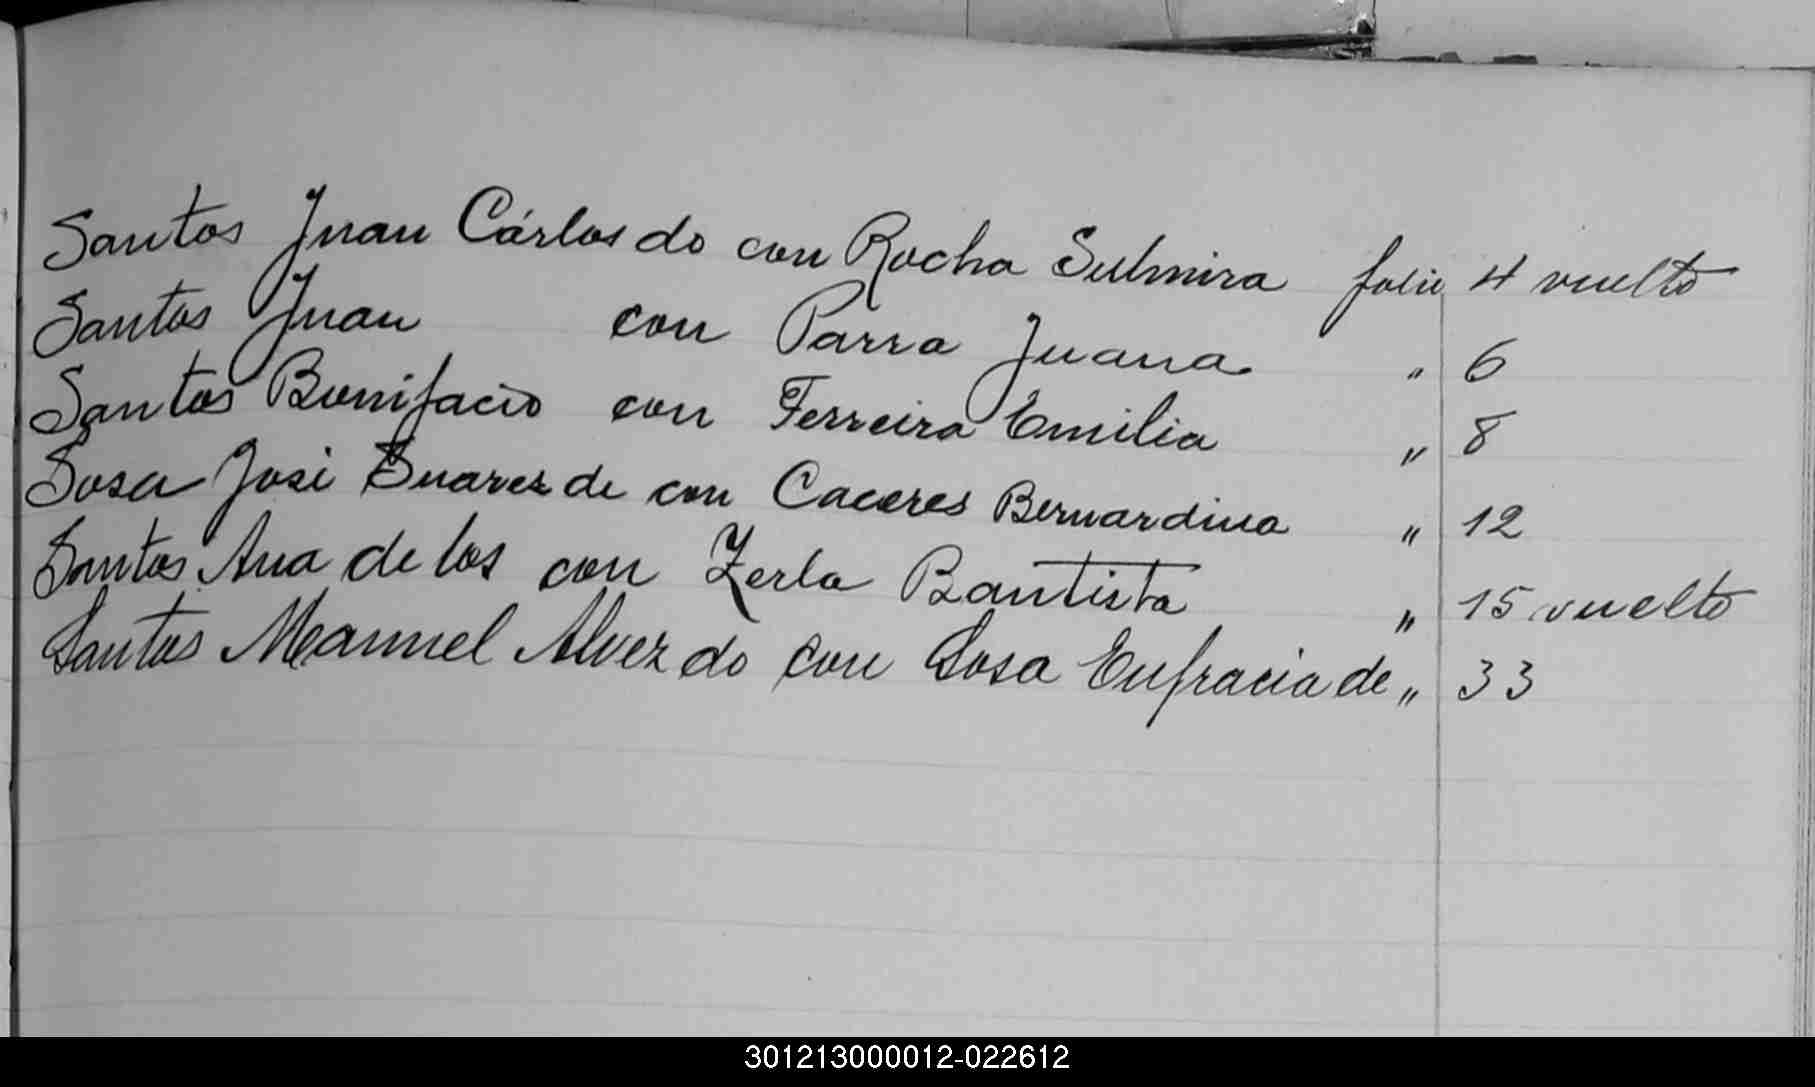 Santos Juan Cárlos do con Rocha Sulmira folio 4 vuelto
Santos Juan con Parra Juana " 6
Santos Bonifacio con Ferreira Emilia " 8
Sosa José Suarez de con Caceres Bernardina " 12
Santos Ana de los con Zerla Bautista " 15 vuelto
Santos Manuel Alvez do con Sosa Eufracia de " 33
301213000012-022612